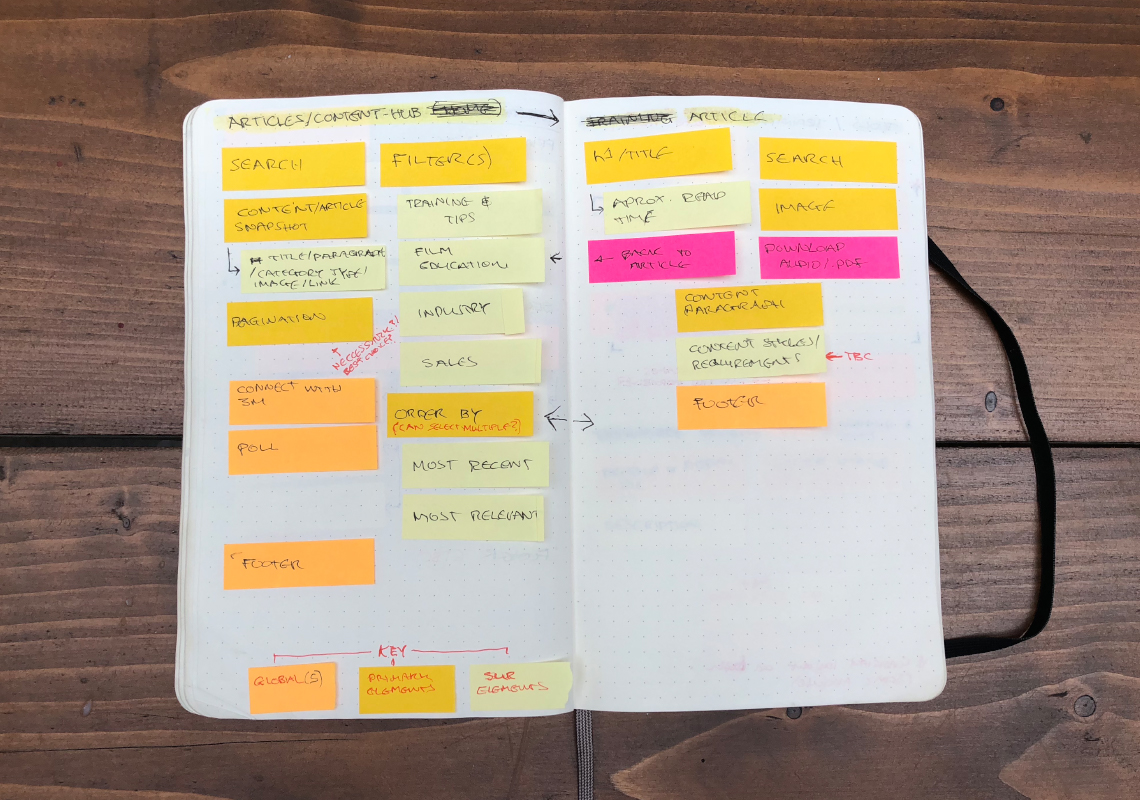 ARTICLES/CONTENT-HUB
SEARCH
CONTENT/ARTICLE
SNAPSHOT
TITLE/PARAGRAPH
/CATEGORY TYPE/
IMAGE/LINK
PAGINATION
NECCESSARY?/
BEST CHOICE?
CONNECT WITH
3M
POLL
FOOTER
FILTER(S)
TRAINING &
TIPS
FILM
EDUCATION
INDUSTRY
SALES
ORDER BY
(CAN SELECT MULTIPLE?)
MOST RECENT
MOST RELEVANT
KEY
GLOBAL(S)
PRIMARY
ELEMENTS
SUB
ELEMENTS
TRAINING ARTICLE
H1/TITLE
APROX. READ
TIME
BACK TO
ARTICLE
SEARCH
IMAGE
DOWNLOAD
AUDIO/.PDF
CONTENT
PARAGRAPH
CONTENT STYLES/
REQUIREMENTS
TBC
FOOTER